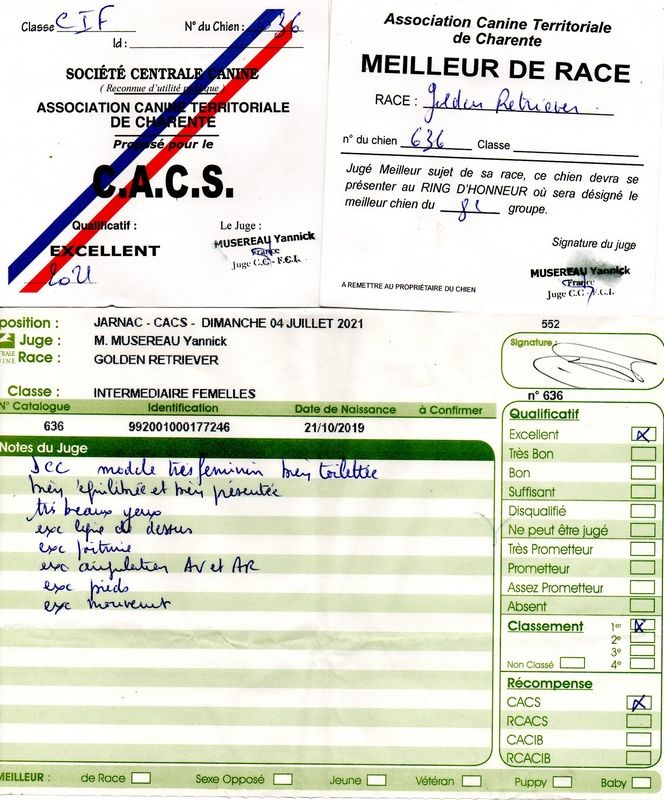 Classe CIF N° du Chien : 636
Id :
SOCIÉTÉ CENTRALE CANINE
( Reconnue d'utilité publique )
ASSOCIATION CANINE TERRITORIALE
DE CHARENTE
Proposé pour le
C.A.C.S.
Qualificatif : Le Juge :
EXCELLENT
2021
MUSEREAU Yannick
France
Juge C.C - F.C.I.
Association Canine Territoriale
de Charente
MEILLEUR DE RACE
RACE : Golden Retriever
n° du chien 636 Classe
Jugé Meilleur sujet de sa race, ce chien devra se
présenter au RING D'HONNEUR où sera désigné le
meilleur chien du 8e groupe.
Signature du juge
MUSEREAU Yannick
France
Juge C.C - F.C.I.
A REMETTRE AU PROPRIÉTAIRE DU CHIEN
position : JARNAC - CACS - DIMANCHE 04 JUILLET 2021 552
Juge : M. MUSEREAU Yannick
Race : GOLDEN RETRIEVER
Signature :
Classe : INTERMEDIAIRE FEMELLES
n° 636
N° Catalogue Identification Date de Naissance à Confirmer
636 992001000177246 21/10/2019
Notes du Juge
DCC modele tres feminin bien toilettée
bien équilibrée et bien présentée
très beaux yeux
exc ligne de dessus
exc poitrine
exc angulation AV et AR
exc pieds
exc mouvement
Qualificatif
Excellent X
Très Bon
Bon
Suffisant
Disqualifié
Ne peut être jugé
Très Prometteur
Prometteur
Assez Prometteur
Absent
Classement 1er X
2e
3e
Non Classé 4e
Récompense
CACS X
RCACS
CACIB
RCACIB
MEILLEUR : de Race Sexe Opposé Jeune Vétéran Puppy Baby